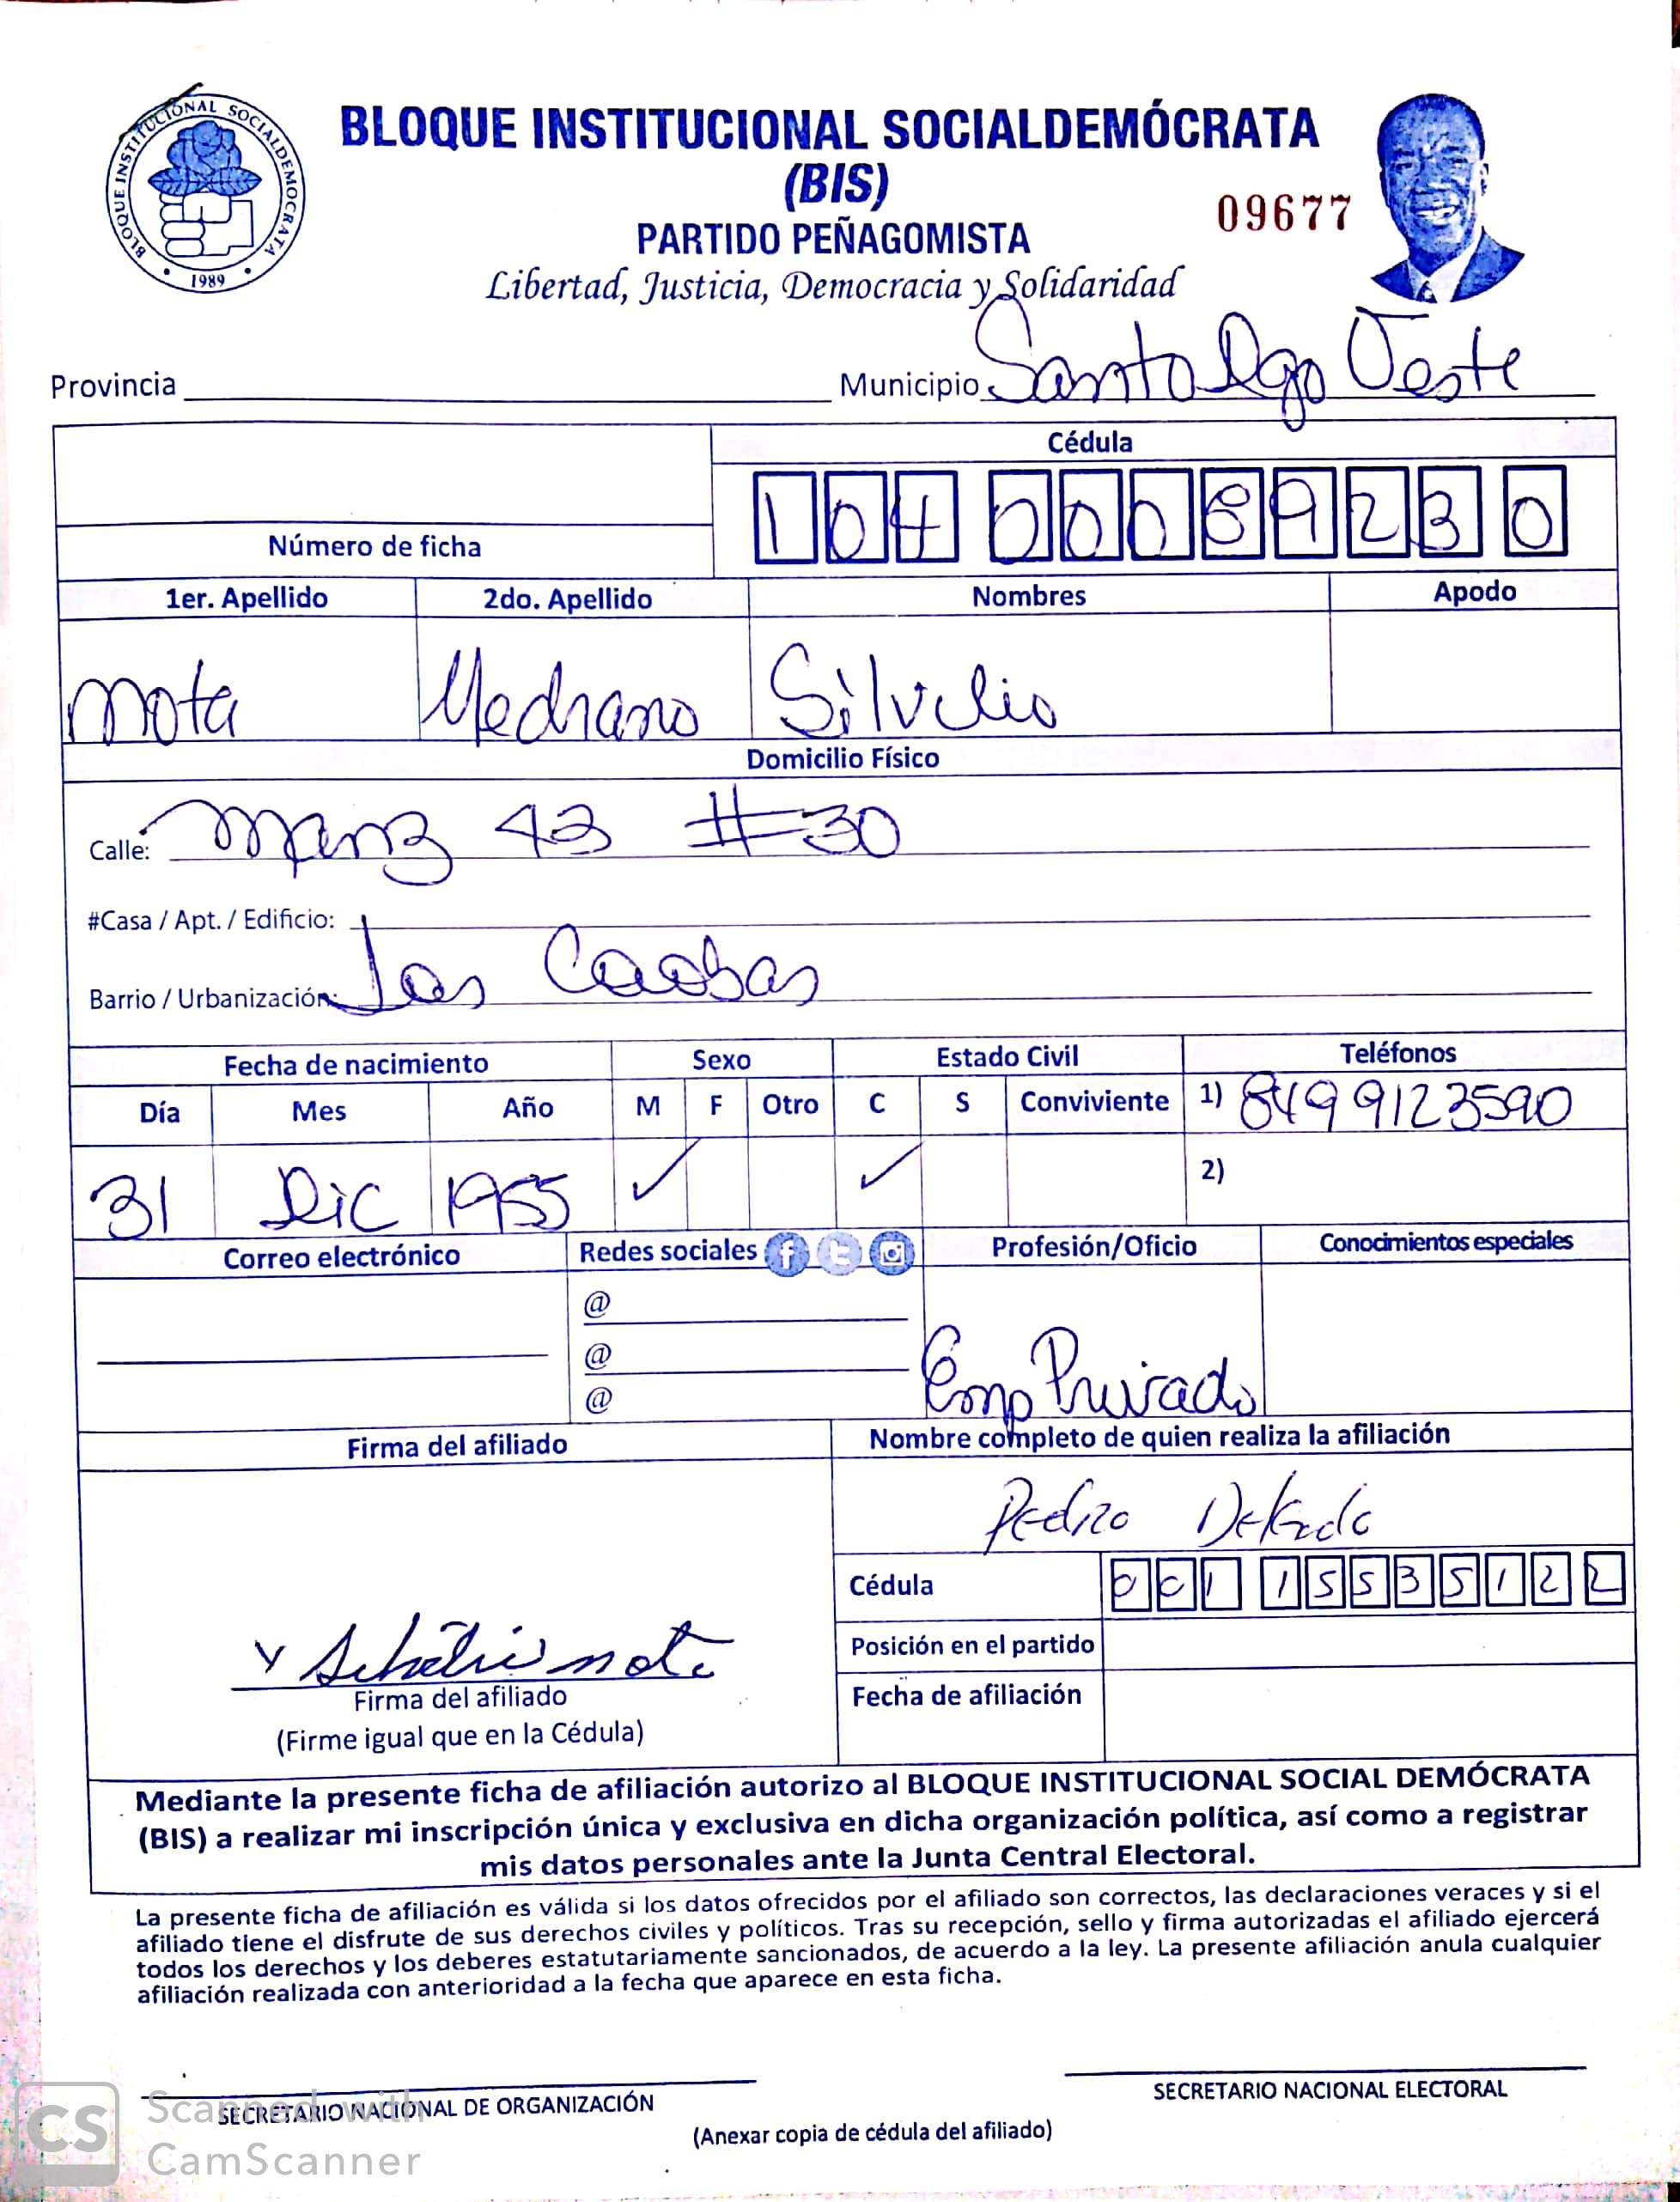 BLOQUE INSTITUCIONAL SOCIALDEMOCRATA
1989
BLOQUE INSTITUCIONAL SOCIALDEMÓCRATA
(BIS)
09677
PARTIDO PEÑAGOMISTA
Libertad, Justicia, Democracia y Solidaridad
Provincia Municipio Santo Dgo Oeste
Cédula
104 0008923 0
Número de ficha
1er. Apellido 2do. Apellido Nombres Apodo
Mota Medrano Silvelio
Domicilio Físico
Calle: Manz 43 #30
#Casa / Apt. / Edificio:
Barrio / Urbanización: Las Caobas
Fecha de nacimiento Sexo Estado Civil Teléfonos
Día Mes Año M F Otro C S Conviviente 1) 8499123590
31 Dic 1955 ✓ ✓ 2)
Correo electrónico Redes sociales Profesión/Oficio Conocimientos especiales
@
@
@
Emp Privado
Firma del afiliado Nombre completo de quien realiza la afiliación
Pedro Delgado
Cédula 001 1553512 2
Posición en el partido
Fecha de afiliación
mota
Firma del afiliado
(Firme igual que en la Cédula)
Mediante la presente ficha de afiliación autorizo al BLOQUE INSTITUCIONAL SOCIAL DEMÓCRATA
(BIS) a realizar mi inscripción única y exclusiva en dicha organización política, así como a registrar
mis datos personales ante la Junta Central Electoral.
La presente ficha de afiliación es válida si los datos ofrecidos por el afiliado son correctos, las declaraciones veraces y si el
afiliado tiene el disfrute de sus derechos civiles y políticos. Tras su recepción, sello y firma autorizadas el afiliado ejercerá
todos los derechos y los deberes estatutariamente sancionados, de acuerdo a la ley. La presente afiliación anula cualquier
afiliación realizada con anterioridad a la fecha que aparece en esta ficha.
SECRETARIO NACIONAL DE ORGANIZACIÓN
SECRETARIO NACIONAL ELECTORAL
(Anexar copia de cédula del afiliado)
CS Scanned with
CamScanner